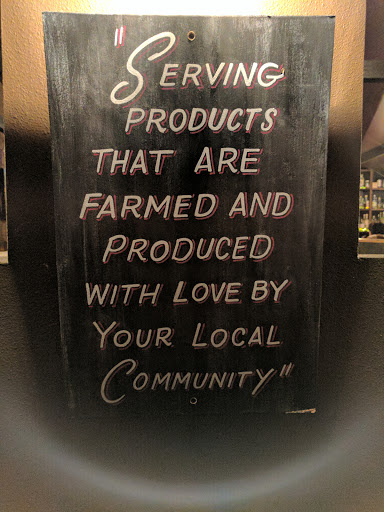 "SERVING
PRODUCTS
THAT ARE
FARMED AND
PRODUCED
WITH LOVE BY
YOUR LOCAL
COMMUNITY"